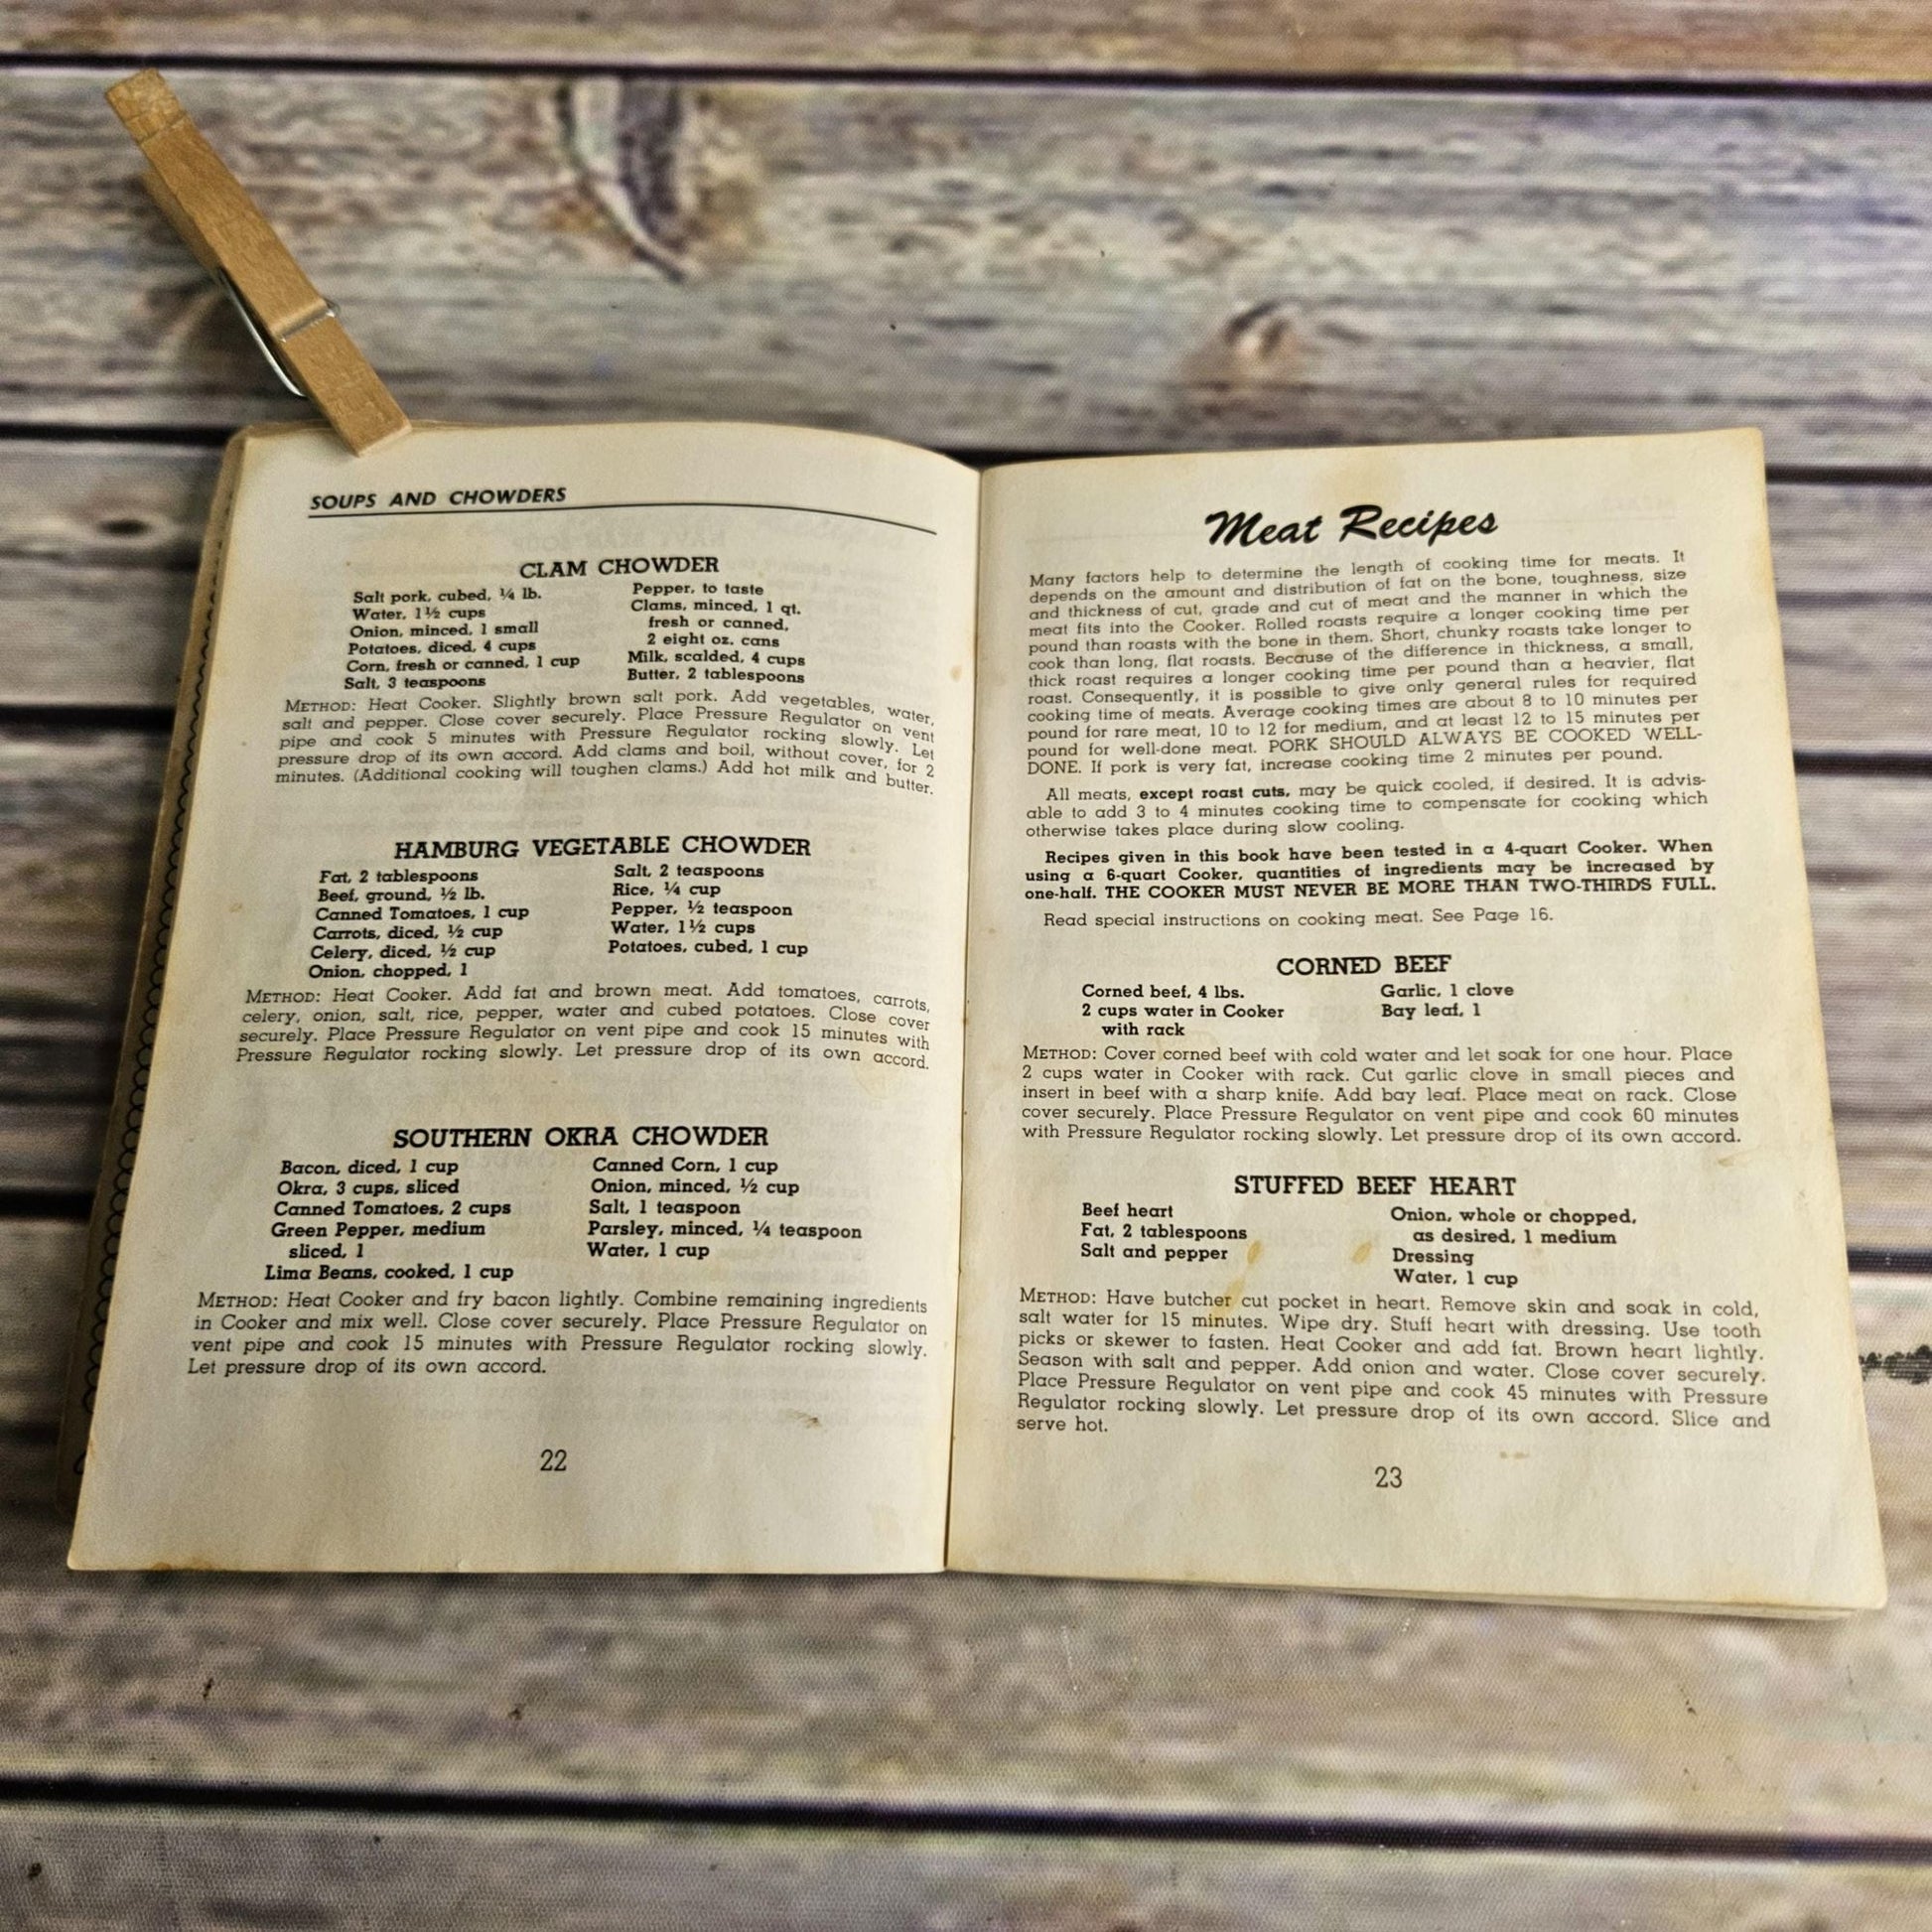 SOUPS AND CHOWDERS
CLAM CHOWDER
Salt pork, cubed, ¼ lb.
Water, 1½ cups
Onion, minced, 1 small
Potatoes, diced, 4 cups
Corn, fresh or canned, 1 cup
Salt, 3 teaspoons
Pepper, to taste
Clams, minced, 1 qt.
fresh or canned,
2 eight oz. cans
Milk, scalded, 4 cups
Butter, 2 tablespoons
METHOD: Heat Cooker. Slightly brown salt pork. Add vegetables, water,
salt and pepper. Close cover securely. Place Pressure Regulator on vent
pipe and cook 5 minutes with Pressure Regulator rocking slowly. Let
pressure drop of its own accord. Add clams and boil, without cover, for 2
minutes. (Additional cooking will toughen clams.) Add hot milk and butter.
HAMBURG VEGETABLE CHOWDER
Fat, 2 tablespoons
Beef, ground, ½ lb.
Canned Tomatoes, 1 cup
Carrots, diced, ½ cup
Celery, diced, ½ cup
Onion, chopped, 1
Salt, 2 teaspoons
Rice, ¼ cup
Pepper, ½ teaspoon
Water, 1½ cups
Potatoes, cubed, 1 cup
METHOD: Heat Cooker. Add fat and brown meat. Add tomatoes, carrots,
celery, onion, salt, rice, pepper, water and cubed potatoes. Close cover
securely. Place Pressure Regulator on vent pipe and cook 15 minutes with
Pressure Regulator rocking slowly. Let pressure drop of its own accord.
SOUTHERN OKRA CHOWDER
Bacon, diced, 1 cup
Okra, 3 cups, sliced
Canned Tomatoes, 2 cups
Green Pepper, medium
sliced, 1
Lima Beans, cooked, 1 cup
Canned Corn, 1 cup
Onion, minced, ½ cup
Salt, 1 teaspoon
Parsley, minced, ¼ teaspoon
Water, 1 cup
METHOD: Heat Cooker and fry bacon lightly. Combine remaining ingredients
in Cooker and mix well. Close cover securely. Place Pressure Regulator on
vent pipe and cook 15 minutes with Pressure Regulator rocking slowly.
Let pressure drop of its own accord.
22
Meat Recipes
Many factors help to determine the length of cooking time for meats. It
depends on the amount and distribution of fat on the bone, toughness, size
and thickness of cut, grade and cut of meat and the manner in which the
meat fits into the Cooker. Rolled roasts require a longer cooking time per
pound than roasts with the bone in them. Short, chunky roasts take longer to
cook than long, flat roasts. Because of the difference in thickness, a small,
thick roast requires a longer cooking time per pound than a heavier, flat
roast. Consequently, it is possible to give only general rules for required
cooking time of meats. Average cooking times are about 8 to 10 minutes per
pound for rare meat, 10 to 12 for medium, and at least 12 to 15 minutes per
pound for well-done meat. PORK SHOULD ALWAYS BE COOKED WELL-
DONE. If pork is very fat, increase cooking time 2 minutes per pound.
All meats, except roast cuts, may be quick cooled, if desired. It is advis-
able to add 3 to 4 minutes cooking time to compensate for cooking which
otherwise takes place during slow cooling.
Recipes given in this book have been tested in a 4-quart Cooker. When
using a 6-quart Cooker, quantities of ingredients may be increased by
one-half. THE COOKER MUST NEVER BE MORE THAN TWO-THIRDS FULL.
Read special instructions on cooking meat. See Page 16.
CORNED BEEF
Corned beef, 4 lbs.
2 cups water in Cooker
with rack
Garlic, 1 clove
Bay leaf, 1
METHOD: Cover corned beef with cold water and let soak for one hour. Place
2 cups water in Cooker with rack. Cut garlic clove in small pieces and
insert in beef with a sharp knife. Add bay leaf. Place meat on rack. Close
cover securely. Place Pressure Regulator on vent pipe and cook 60 minutes
with Pressure Regulator rocking slowly. Let pressure drop of its own accord.
STUFFED BEEF HEART
Beef heart
Fat, 2 tablespoons
Salt and pepper
Onion, whole or chopped,
as desired, 1 medium
Dressing
Water, 1 cup
METHOD: Have butcher cut pocket in heart. Remove skin and soak in cold,
salt water for 15 minutes. Wipe dry. Stuff heart with dressing. Use tooth
picks or skewer to fasten. Heat Cooker and add fat. Brown heart lightly.
Season with salt and pepper. Add onion and water. Close cover securely.
Place Pressure Regulator on vent pipe and cook 45 minutes with Pressure
Regulator rocking slowly. Let pressure drop of its own accord. Slice and
serve hot.
23